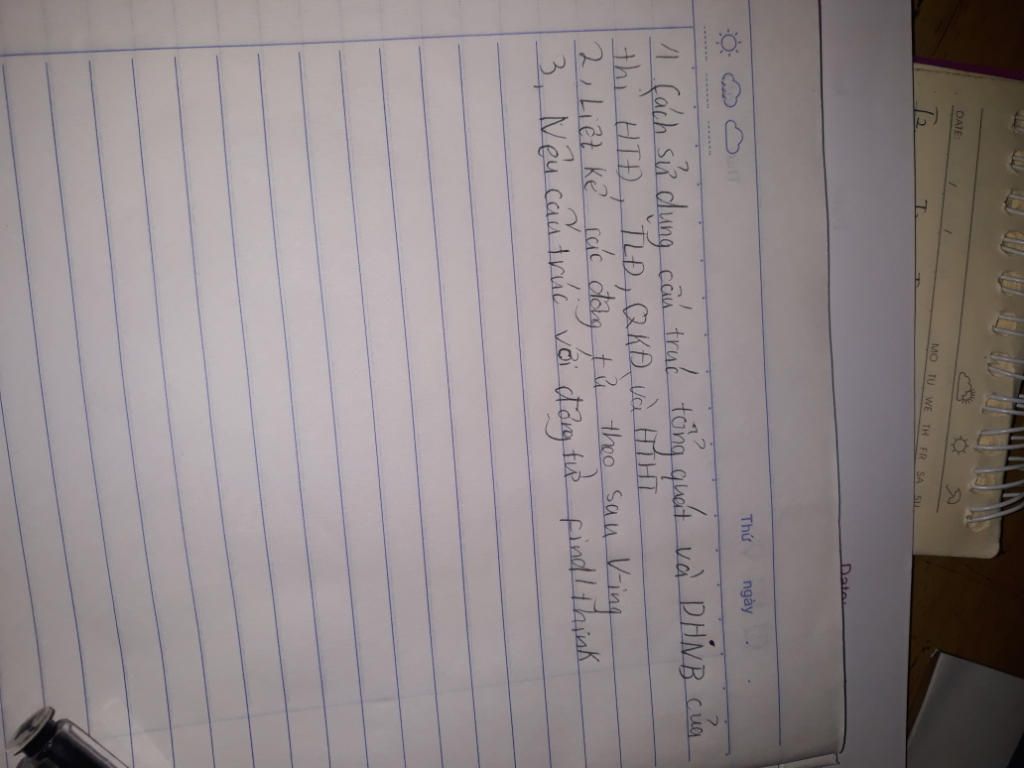 Thứ ngày
1) Cách sử dụng cấu trúc tổng quát và DHNB của
thì HTĐ, TLĐ, QKĐ và HTHT
2, Liệt kê các động từ theo sau V-ing
3, Nêu cấu trúc với động từ find/think
DATE
MO TU WE TH FR SA SU
T2
Date: